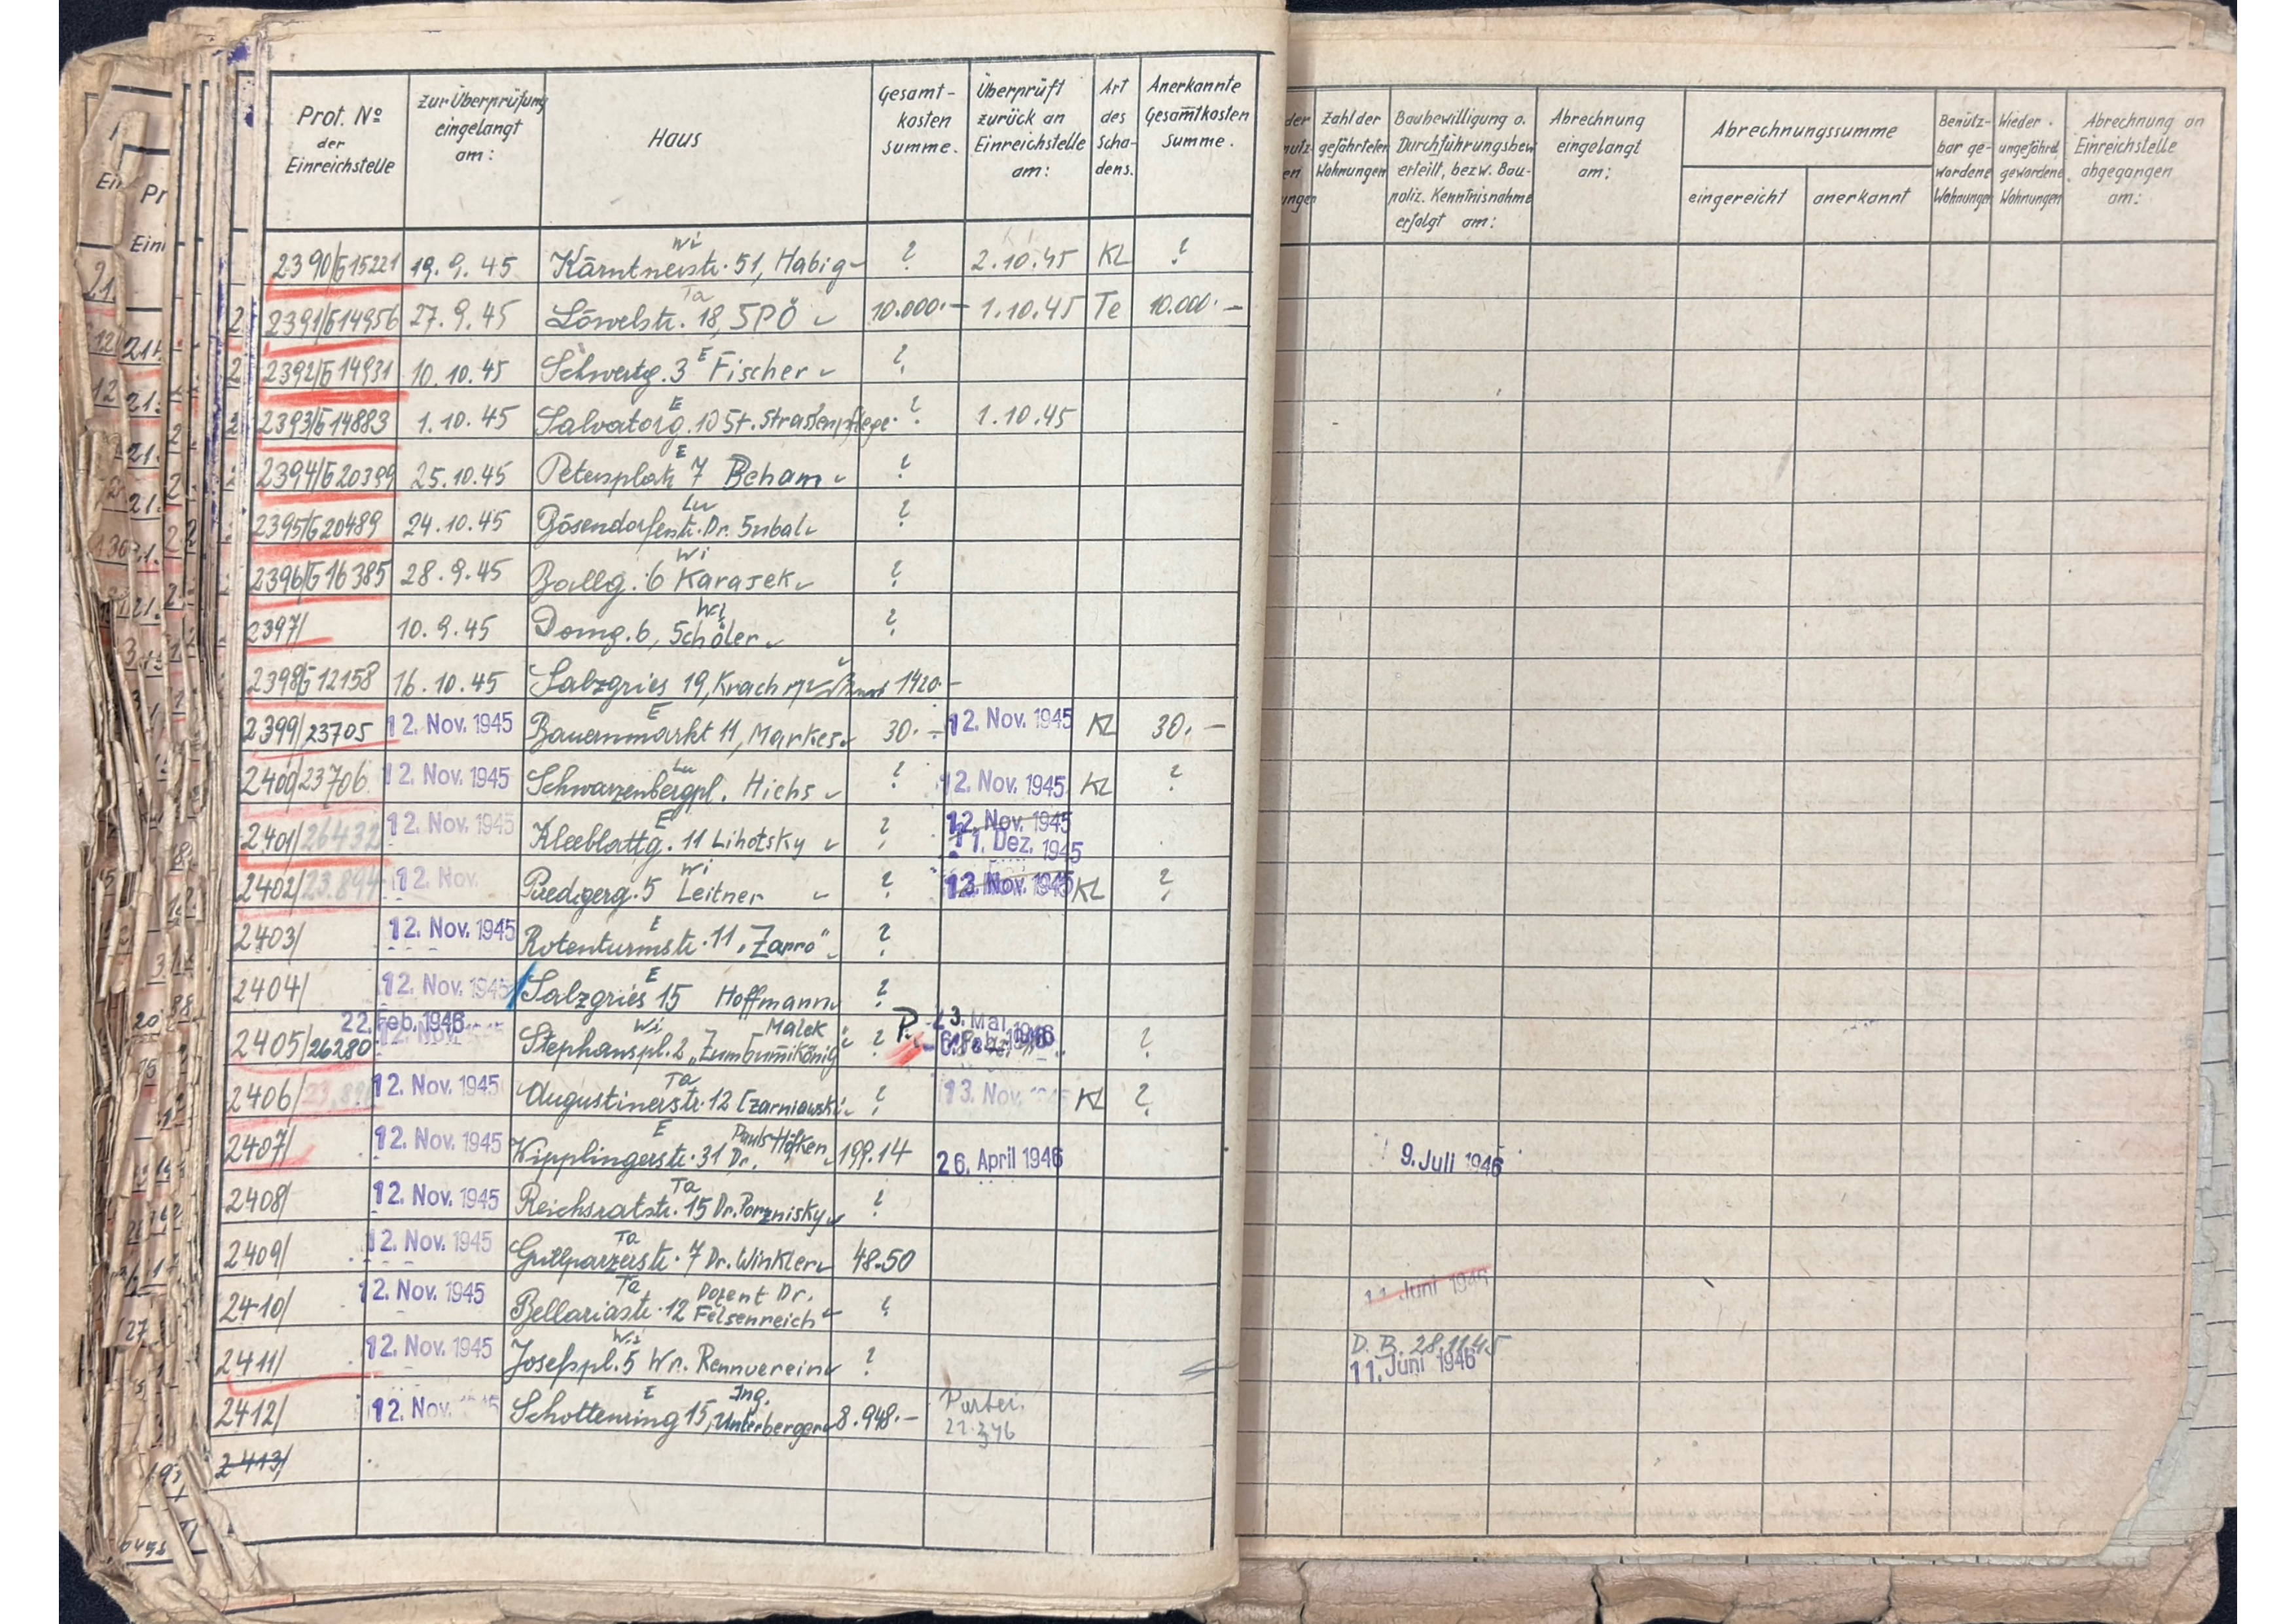 Prot. No der Einreichstelle | Zur Überprüfung eingelangt am: | Haus | Gesamt-kosten summe. | Überprüft zurück an Einreichstelle am: | Art des Scha-dens. | Anerkannte Gesamtkosten Summe. | Zahl der gefährteten Wohnungen | Baubewilligung o. Durchführungsbew erteilt, bezw. Bau-poliz. Kenntnisnahme erfolgt am: | Abrechnung eingelangt am: | Abrechnungssumme eingereicht | anerkannt | Benütz-bar ge-wordene Wohnungen | Wieder ungefährd. gewordene Wohnungen | Abrechnung an Einreichstelle abgegangen am:
2390/G15221 19.9.45 Kärntnerstr. 51, Habig Wi ? 2.10.45 KL ?
2391/G14956 27.9.45 Löwelstr. 18, SPÖ Ta 10.000.- 1.10.45 Te 10.000.-
2392/G14931 10.10.45 Schwertg. 3 E Fischer ?
2393/G14883 1.10.45 Salvatorg. 10 E St. Strassenpflege ? 1.10.45
2394/G20399 25.10.45 Petersplatz 7 E Beham ?
2395/G20489 24.10.45 Bösendorferstr. Lu Dr. ?
2396/G16385 28.9.45 Ballg. 6 Wi Karasek ?
2397/ 10.9.45 Domg. 6, Wi Schöler ?
2398/G12158 16.10.45 Salzgries 19, Krach 1420.-
2399/23705 12. Nov. 1945 Bauernmarkt 11, E Markes 30.- 12. Nov. 1945 KL 30.-
2400/23706 12. Nov. 1945 Schwarzenbergpl. Lu Hichs ? 12. Nov. 1945 KL ?
2401/26432 12. Nov. 1945 Kleeblattg. 11 E Lihotsky ? 12. Nov. 1945 11. Dez. 1945
2402/23.894 12. Nov. Riedgerg. 5 Wi Leitner ? 13. Nov. 1945 KL ?
2403/ 12. Nov. 1945 Rotenturmstr. 11 E „Zarro" ?
2404/ 12. Nov. 1945 Salzgries 15 E Hoffmann ?
2405/26280 22. Feb. 1946 Stephanspl. 2 Wi Malek „Zum Gummikönig" ? P. 23. Mai 1946 ?
2406/ 12. Nov. 1945 Augustinerstr. 12 Ta Czarniawski ? 13. Nov. KL ?
2407/ 12. Nov. 1945 Wipplingerstr. 31 E Dr. Pauls-Höfken 199.14 26. April 1946 9. Juli 1946
2408/ 12. Nov. 1945 Reichsratstr. 15 Ta Dr. Porznisky ?
2409/ 12. Nov. 1945 Grillparzerstr. 7 Ta Dr. Winkler 48.50
2410/ 12. Nov. 1945 Bellariastr. 12 Ta Dozent Dr. Felsenreich ? 11. Juni 1946
2411/ 12. Nov. 1945 Josefspl. 5 Wi Wr. Rennverein ? D. B. 28.11.45 11. Juni 1946
2412/ 12. Nov. 1945 Schottenring 15, E Ing. Unterberger 8.948.- Partei. 22.3.46
2413/